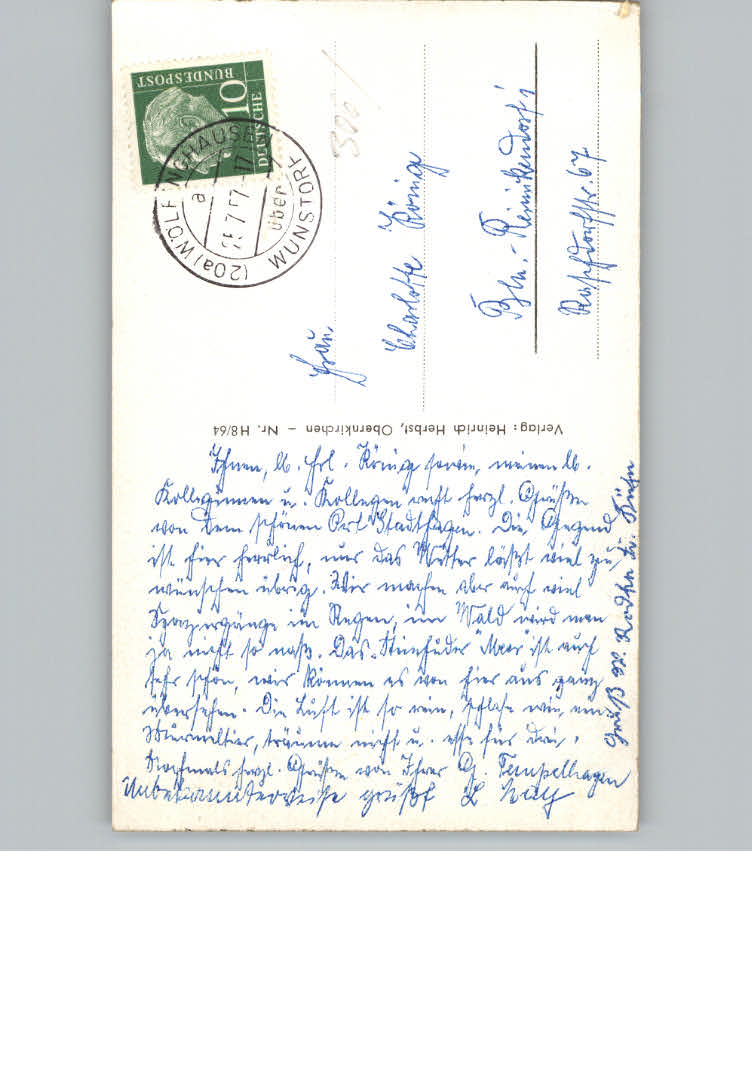 DEUTSCHE
BUNDESPOST
10
(20a) WOLFINGHAUSEN
über WUNSTORF
a
7.57.-17
Frau
Charlotte König
Bln.-Reinickendorf 1
Raschdorffstr. 67
Verlag: Heinrich Herbst, Obernkirchen – Nr. H8/64
Ihnen, lb. Frl. König sowie meinen lb.
Kolleginnen u. Kollegen recht herzl. Grüße
von dem schönen Ort Stadthagen. Die Gegend
ist hier herrlich, nur das Wetter läßt viel zu
wünschen übrig. Wir machen aber auch viel
Spaziergänge im Regen, im Wald wird man
ja nicht so naß. Das Steinhuder "Meer" ist auch
sehr schön, wir können es von hier aus ganz
übersehen. Die Luft ist so rein, schlafe wie ein
Murmeltier, träume nicht u. esse für drei.
Nochmals herzl. Grüße von Ihrer G. Tempelhagen
Unbekannterweise grüßt
Gruß